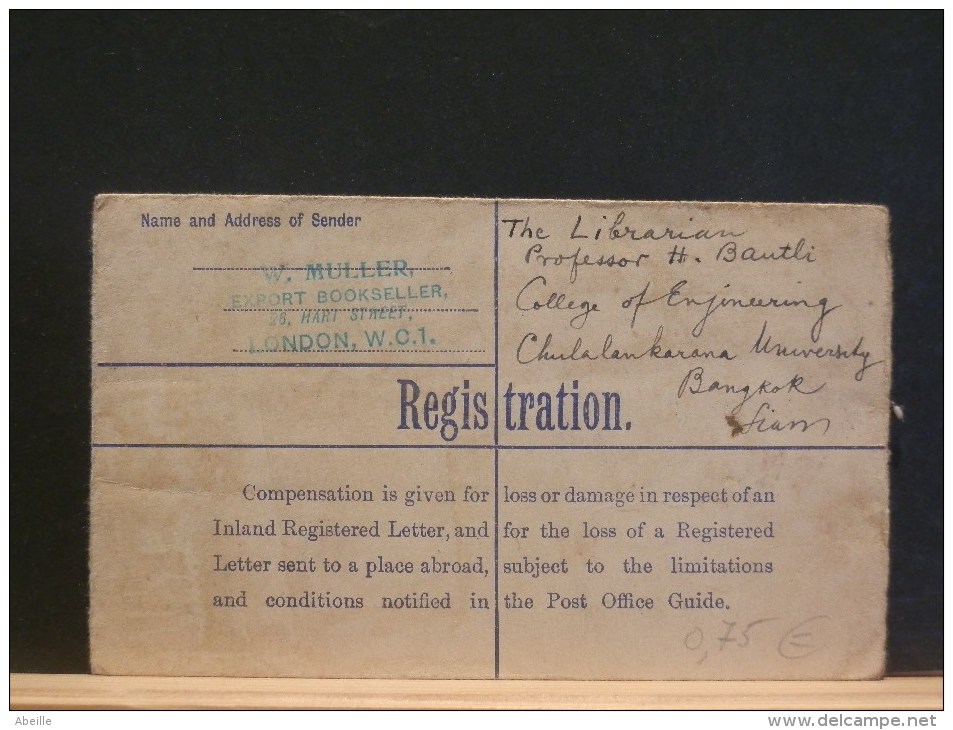 Name and Address of Sender
W. MULLER,
EXPORT BOOKSELLER,
26, HART STREET,
LONDON, W.C.1.
The Librarian
Professor H. Bautli
College of Enjineering
Chulalankarana University
Bangkok
Siam
Registration.
Compensation is given for loss or damage in respect of an
Inland Registered Letter, and for the loss of a Registered
Letter sent to a place abroad, subject to the limitations
and conditions notified in the Post Office Guide.
0,75 €
Abeille
www.delcampe.net